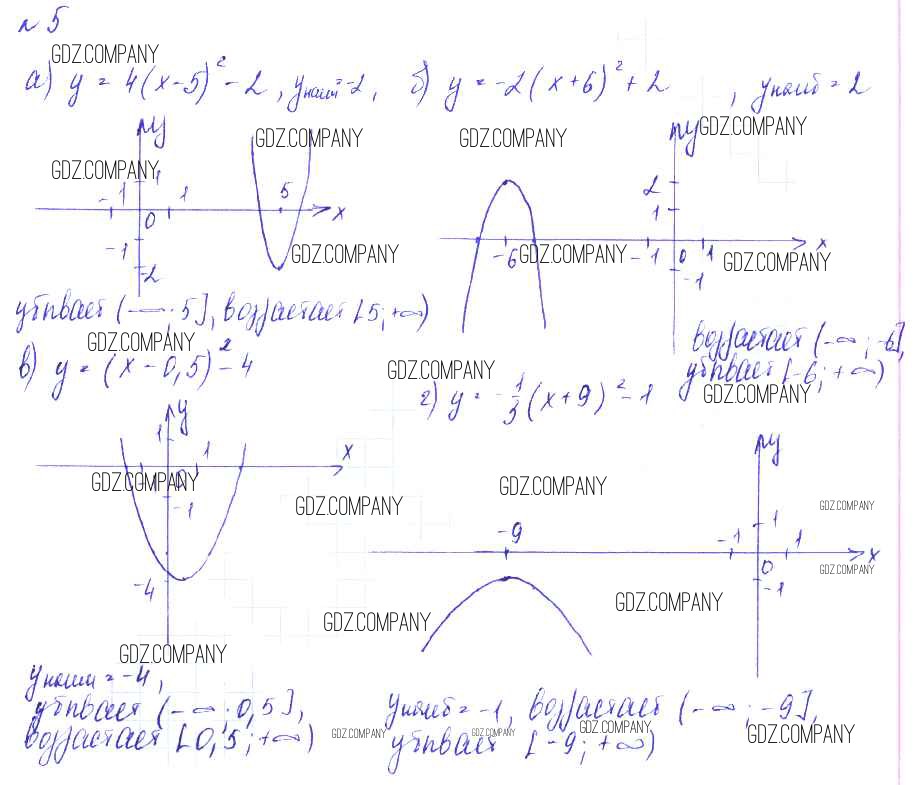 № 5
GDZ.COMPANY
а) y = 4(x-5)² - 2, yнаим = -2, б) y = -2(x+6)² + 2, yнаиб = 2
GDZ.COMPANY GDZ.COMPANY GDZ.COMPANY
y y
GDZ.COMPANY
1 5 2
-1 1 1
0 x
-1 GDZ.COMPANY -6 GDZ.COMPANY -1 0 1 x
-2 -1 GDZ.COMPANY
убывает (-∞; 5], возрастает [5; +∞)
GDZ.COMPANY возрастает (-∞; -6],
в) y = (x - 0,5)² - 4 GDZ.COMPANY убывает [-6; +∞)
г) y = -1/3(x+9)² - 1 GDZ.COMPANY
y
1 1 x y
GDZ.COMPANY 0 GDZ.COMPANY
-1 GDZ.COMPANY GDZ.COMPANY
-9 -1 1 1
x
0 GDZ.COMPANY
-4 -1
GDZ.COMPANY GDZ.COMPANY
GDZ.COMPANY
yнаим = -4,
убывает (-∞; 0,5], yнаиб = -1, возрастает (-∞; -9],
возрастает [0,5; +∞) GDZ.COMPANY GDZ.COMPANY GDZ.COMPANY GDZ.COMPANY
убывает [-9; +∞)